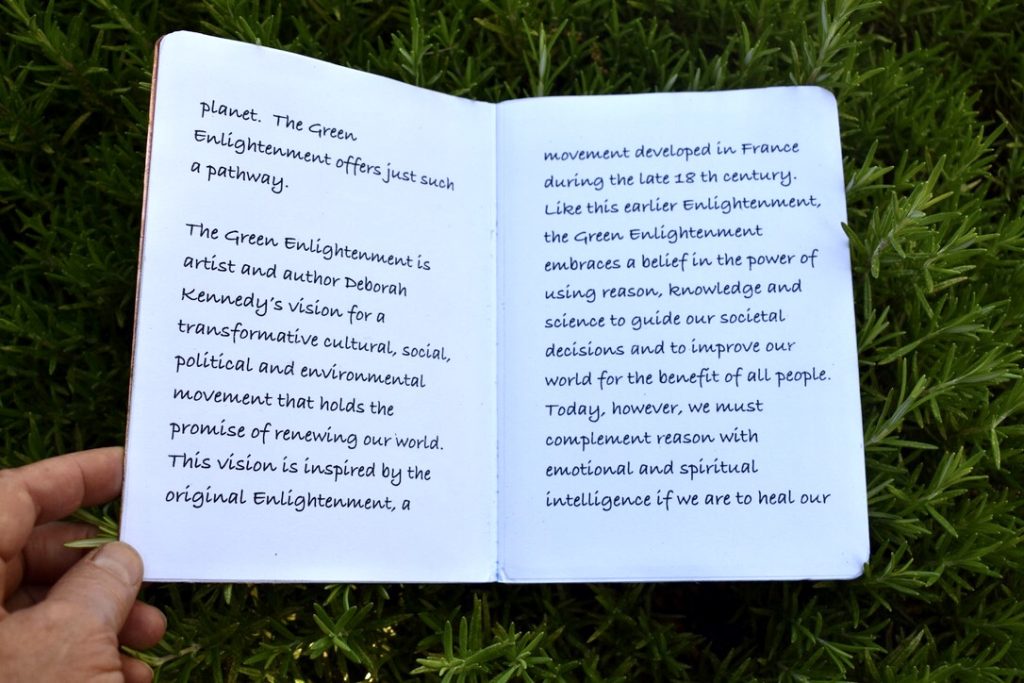 planet. The Green
Enlightenment offers just such
a pathway.
The Green Enlightenment is
artist and author Deborah
Kennedy's vision for a
transformative cultural, social,
political and environmental
movement that holds the
promise of renewing our world.
This vision is inspired by the
original Enlightenment, a
movement developed in France
during the late 18 th century.
Like this earlier Enlightenment,
the Green Enlightenment
embraces a belief in the power of
using reason, knowledge and
science to guide our societal
decisions and to improve our
world for the benefit of all people.
Today, however, we must
complement reason with
emotional and spiritual
intelligence if we are to heal our